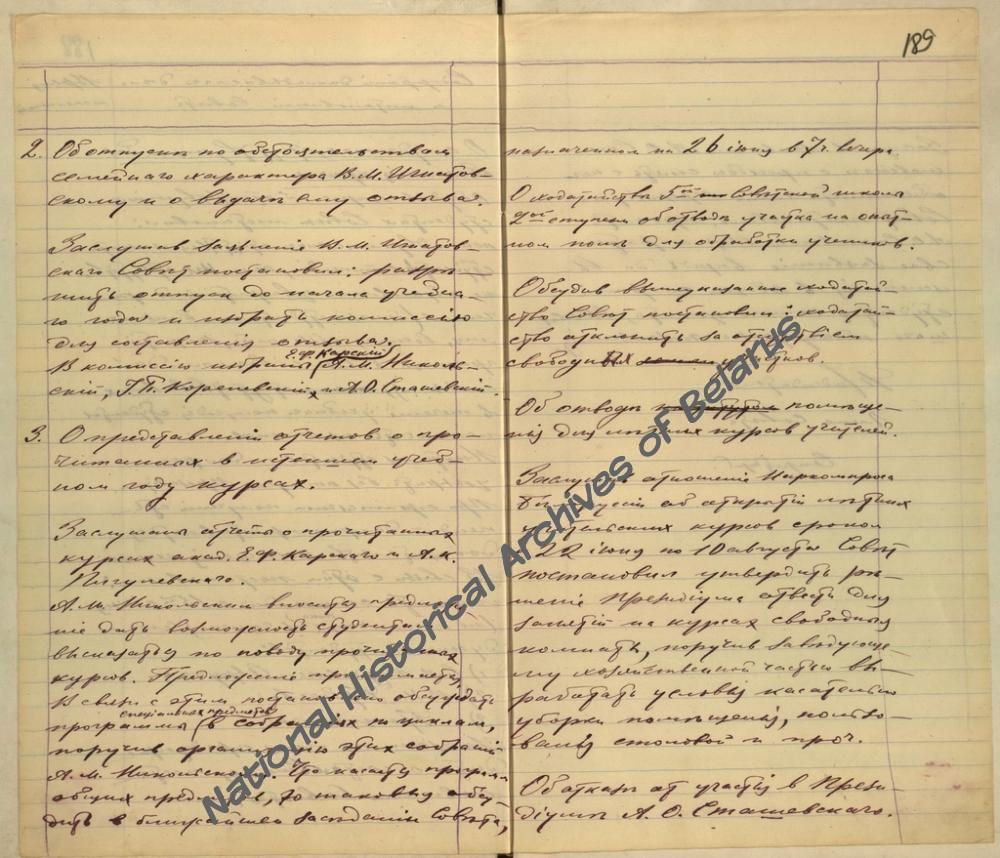 189
2. Об отпускѣ по обстоятельствамъ
семейнаго характера В. М. Игнатов-
скому и о выдачѣ ему отзыва.
Заслушав заявленіе В. М. Игнатов
скаго Совѣт постановил: разрѣ
шить отпуск до начала учебна-
го года и избрать комиссію
для составленія отзыва.
Е.Ф. Карскій
В комиссію избраны (А. М. Николь-
скій, Г. П. Кореневскій и А. О. Сташевскій.
3. О представленіи отчетов о про-
читанных в истекшем учеб-
ном году курсах.
Заслушаны отчеты о прочитанных
курсах акад. Е. Ф. Карскаго и А. К.
Пигулевскаго.
А. М. Никольскій вноситъ предложе
ніе дать возможность студентам
высказаться по поводу прочитанных
курсов. Предложеніе принимается
В связи с этим постановлено обсуждать
спеціальных предметов
программы (в собраніях по циклам,
поручив организацію этих собраній
А. М. Никольскому. Что касается программ
общих предметов, то таковыя обсу-
дить в ближайшем засѣданіи Совѣта,
назначенном на 26 іюня в 7 ч. вечера
О ходатайствѣ 5ой Совѣтской школы
2ой ступени об отводѣ участка на опыт-
ном полѣ для обработки учеников.
Обсудив вышеуказанное ходатай
ство Совѣт постановил: ходатай-
ство отклонить за отсутствіем
свободных участков.
Об отводѣ помѣще-
нія для лѣтних курсов учителей.
Заслушав отношеніе Наркомпроса
Бѣлоруссіи об открытіи лѣтних
учительских курсов сроком
с 22 іюня по 10 августа Совѣт
постановил утвердить рѣ-
шеніе Президіума отвести для
занятій на курсах свободныя
комнаты, поручив завѣдующе-
му хозяйственной частью вы-
работать условія касательно
уборки помѣщенія, пользо-
ванія столовой и проч.
Об отказѣ от участія в Прези-
діумѣ А. О. Сташевскаго.
National Historical Archives of Belarus